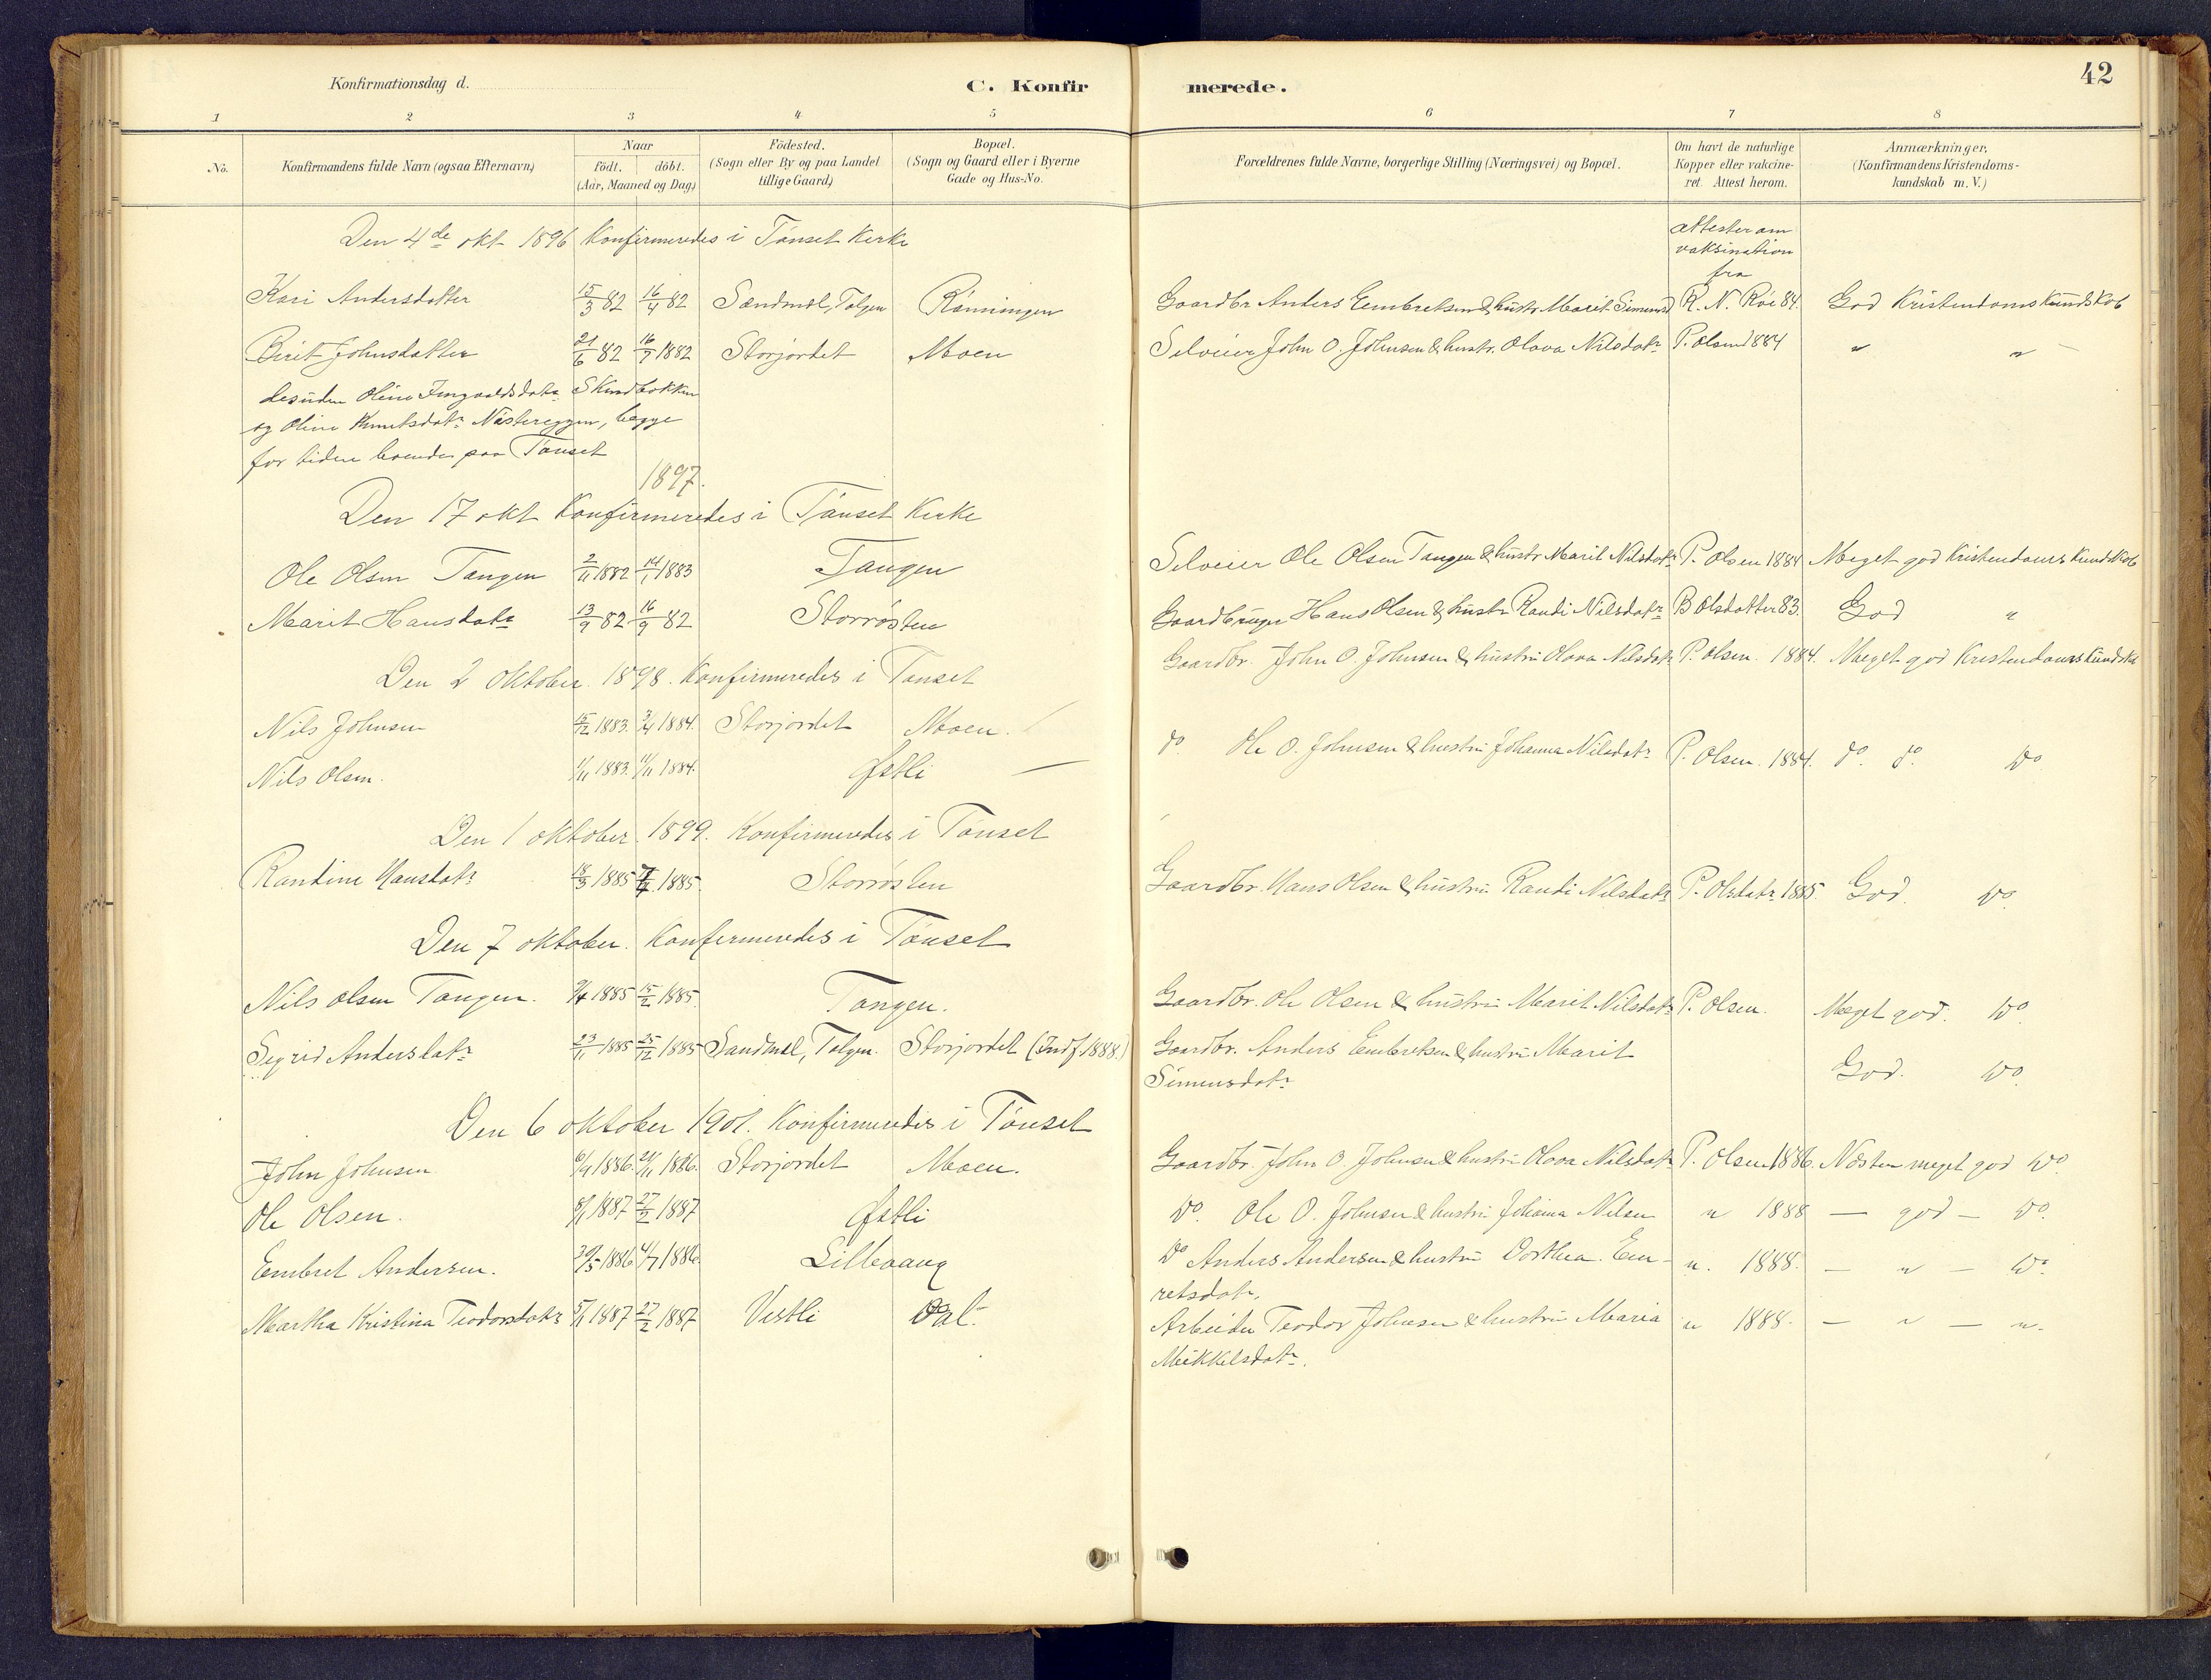 42
Konfirmationsdag d.
C. Konfirmerede.
1 2 3 4 5 6 7 8
No. Konfirmandens fulde Navn (ogsaa Efternavn) Naar födt. döbt. (Aar, Maaned og Dag) Födested. (Sogn eller By og paa Landet tillige Gaard) Bopæl. (Sogn og Gaard eller i Byerne Gade og Hus-No. Forældrenes fulde Navne, borgerlige Stilling (Næringsvei) og Bopæl. Om havt de naturlige Kopper eller vakcineret. Attest herom. Anmærkninger, (Konfirmandens Kristendomskundskab m. V.)
Den 4de okt 1896 Konfirmeredes i Tönset Kirke
attester om
vaksination
fra
Kari Andersdatter 15/3 82 16/4 82 Sandmæl, Tolgen Rönningen Gaardbr Anders Eembretsen & hustr Marit Simensd R. N. Röe 84. God Kristendomskundskab
Berit Johnsdatter 21/6 82 16/7 1882 Storjordet Moen Selveier John O. Johnsen & hustr. Olava Nilsdatr P. Olsen 1884 " "
desuden Oline Ingvaldsdatr Skindbakken
og Oline Knutsdatr Nästereggen, begge
for tiden boende paa Tönset
1897.
Den 17 okt Konfirmeredes i Tönset Kirke
Ole Olsen Tangen 2/11 1882 14/1 1883 Tangen Selveier Ole Olsen Tangen & hustr Marit Nilsdatr P. Olsen 1884 Meget god Kristendomskundskab
Marit Hansdatr 13/9 82 16/9 82 Storrösten Gaardbruger Hans Olsen & hustr Randi Nilsdatr B Olsdatter 83. God "
Den 2 Oktober 1898. Konfirmeredes i Tönset
Gaardbr. John O. Johnsen & hustru Olava Nilsdatr P. Olsen. 1884. Meget god Kristendomskundska
Nils Johnsen 15/12 1883. 3/4 1884. Storjordet Moen.
Nils Olsen. 11/11 1883. 11/11 1884. Østli do Ole O. Johnsen & hustru Johanna Nilsdatr P. Olsen. 1884. do. do. Do
Den 1 oktober 1899. Konfirmeredes i Tönset
Randine Hansdatr 18/3 1885 7/4 1885. Storrösten Gaardbr. Hans Olsen & hustru Randi Nilsdatr P. Olsdatr 1885. God. Do.
Den 7 oktober. Konfirmeredes i Tönset
Nils Olsen Tangen. 1885 15/2 1885. Tangen. Gaardbr. Ole Olsen & hustru Marit Nilsdatr P. Olsen. Meget god. Do.
Sigrid Andersdatr 23/11 1885 25/12 1885 Sandmæl, Tolgen. Storjordet (Indf 1888.) Gaardbr. Anders Eembretsen & hustru Marit
Simensdatr God. Do.
Den 6 oktober 1901. Konfirmeredes i Tönset
John Johnsen. 6/9 1886. 21/11 1886. Storjordet Moen. Gaardbr. John O. Johnsen & hustru Olava Nilsdatr P. Olsen 1886. Næsten meget god Do.
Ole Olsen. 1887 27/2 1887 Østli Do. Ole O. Johnsen & hustru Johanna Nilsen " 1888 — god — Do.
Eembret Andersen. 30/5 1886 4/7 1886. Lillevang Do Anders Andersen & hustru Dorthea Em-
retsdatr. " 1888. — " — Do.
Martha Kristina Teodorsdatr 5/1 1887 27/2 1887 Vestli Dal. Arbeider Teodor Johnsen & hustru Maria
Mikkelsdatr. " 1888. — " — "